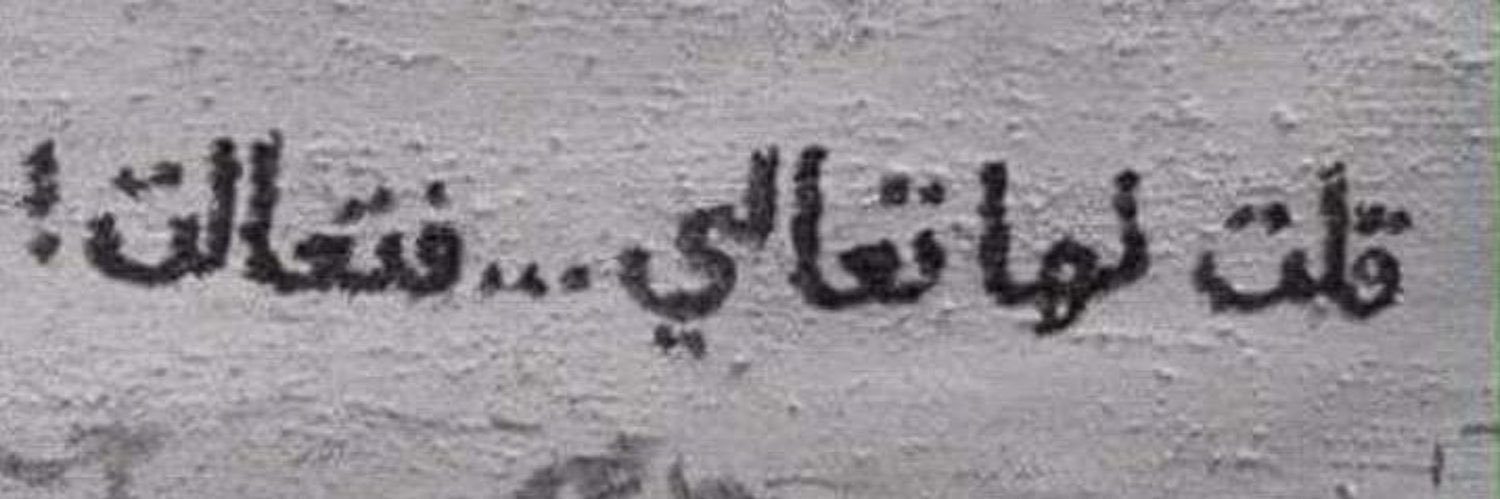 قلت لها تعالي ... فتعالت !